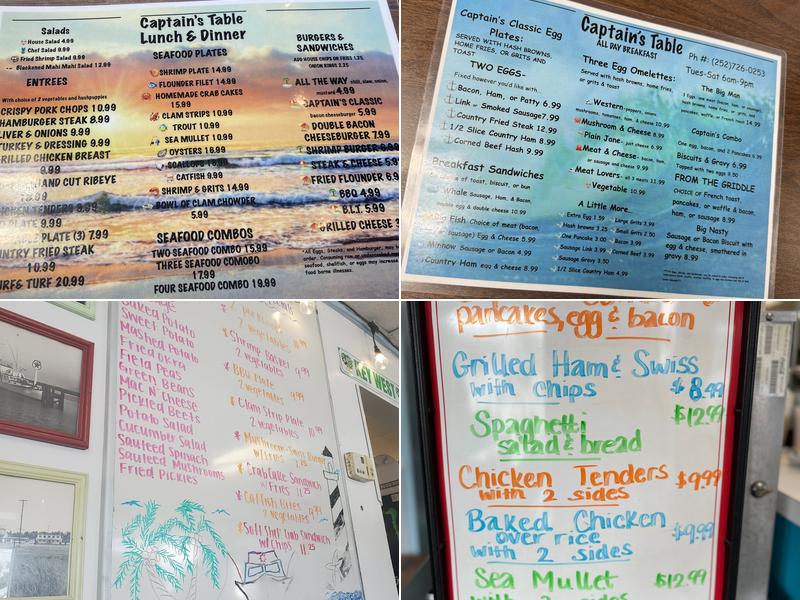 Captain's Table
Lunch & Dinner
Salads
House Salad 4.99
Chef Salad 9.99
Fried Shrimp Salad 9.99
Blackened Mahi Mahi Salad 12.99
ENTREES
With choice of 2 vegetables and hushpuppies
CRISPY PORK CHOPS 10.99
HAMBURGER STEAK 8.99
LIVER & ONIONS 9.99
TURKEY & DRESSING 9.99
GRILLED CHICKEN BREAST
9.99
HAND CUT RIBEYE
CHICKEN TENDERS 8.99
PLATE 9.99
PLATE (3) 7.99
COUNTRY FRIED STEAK
10.99
SURF & TURF 20.99
SEAFOOD PLATES
SHRIMP PLATE 14.99
FLOUNDER FILET 14.99
HOMEMADE CRAB CAKES
15.99
CLAM STRIPS 10.99
TROUT 10.99
SEA MULLET 10.99
OYSTERS 16.99
SCALLOPS
CATFISH 9.99
SHRIMP & GRITS 14.99
BOWL OF CLAM CHOWDER
5.99
SEAFOOD COMBOS
TWO SEAFOOD COMBO 15.99
THREE SEAFOOD COMOBO
17.99
FOUR SEAFOOD COMBO 19.99
BURGERS &
SANDWICHES
ADD HOUSE CHIPS OR FRIES 1.25
ONION RINGS 2.25
ALL THE WAY chili, slaw, onion,
mustard 4.99
CAPTAIN'S CLASSIC
bacon cheeseburger 5.99
DOUBLE BACON
CHEESEBURGER 7.99
SHRIMP BURGER
STEAK & CHEESE 5.9
FRIED FLOUNDER 6.9
BBQ 4.99
B.L.T. 5.99
GRILLED CHEESE 3
Captain's Table
ALL DAY BREAKFAST
Ph #: (252)726-0253
Tues-Sat 6am-9pm
Captain's Classic Egg
Plates:
SERVED WITH HASH BROWNS,
HOME FRIES, OR GRITS AND
TOAST
TWO EGGS-
Fixed however you'd like with...
Bacon, Ham, or Patty 6.99
Link or Smoked Sausage 7.99
Country Fried Steak 12.99
1/2 Slice Country Ham 8.99
Corned Beef Hash 9.99
Breakfast Sandwiches
Choice of toast, biscuit, or bun
Whale Sausage, Ham, & Bacon,
double egg & double cheese 10.99
Big Fish Choice of meat (bacon,
sausage) Egg & Cheese 5.99
Minnow Sausage or Bacon 4.99
Country Ham egg & cheese 8.99
Three Egg Omelettes:
Served with hash browns, home fries,
or grits & toast
Western-peppers, onions,
mushrooms, tomatoes, ham, & cheese 10.99
Mushroom & Cheese 8.99
Plain Jane- just cheese 6.99
Meat & Cheese- bacon, ham,
or sausage and cheese 9.99
Meat Lovers- all 3 meats 11.99
Vegetable 10.99
A Little More...
Extra Egg 1.59
Hash browns 3.25
One Pancake 3.00
Sausage Link 3.99
Sausage Gravy 3.50
1/2 Slice Country Ham 4.99
Large Grits 3.99
Small Grits 2.50
Bacon 3.99
Corned Beef 3.99
The Big Man
Captain's Combo
One egg, bacon, and 2 Pancakes 8.99
Biscuits & Gravy 6.99
Topped with two eggs 9.50
FROM THE GRIDDLE
CHOICE OF French toast,
pancakes, or waffle & bacon,
ham, or sausage 8.99
Big Nasty
Sausage or Bacon Biscuit with
egg & cheese, smothered in
gravy 8.99
Baked Potato
Sweet Potato
Mashed Potato
Fried Okra
Field Peas
Green Beans
Mac N' Cheese
Pickled Beets
Potato Salad
Cucumber Salad
Sauteed Spinach
Sauteed Mushrooms
Fried Pickles
2 vegetables
Shrimp Basket
2 vegetables 9.99
BBQ Plate
2 vegetables 9.99
Clam Strip Plate
2 vegetables 10.99
Mushroom-Swiss Burger
w/ Fries
Crabcake Sandwich
w/ Fries 11.25
Catfish Bites
2 vegetables 9.99
Soft Shell Crab Sandwich
w/ Chips 11.25
KEY WEST
pancakes, egg & bacon
Grilled Ham & Swiss
with chips $8.49
Spaghetti $12.99
salad & bread
Chicken Tenders $9.99
with 2 sides
Baked Chicken
over rice $9.99
with 2 sides
Sea Mullet $12.99